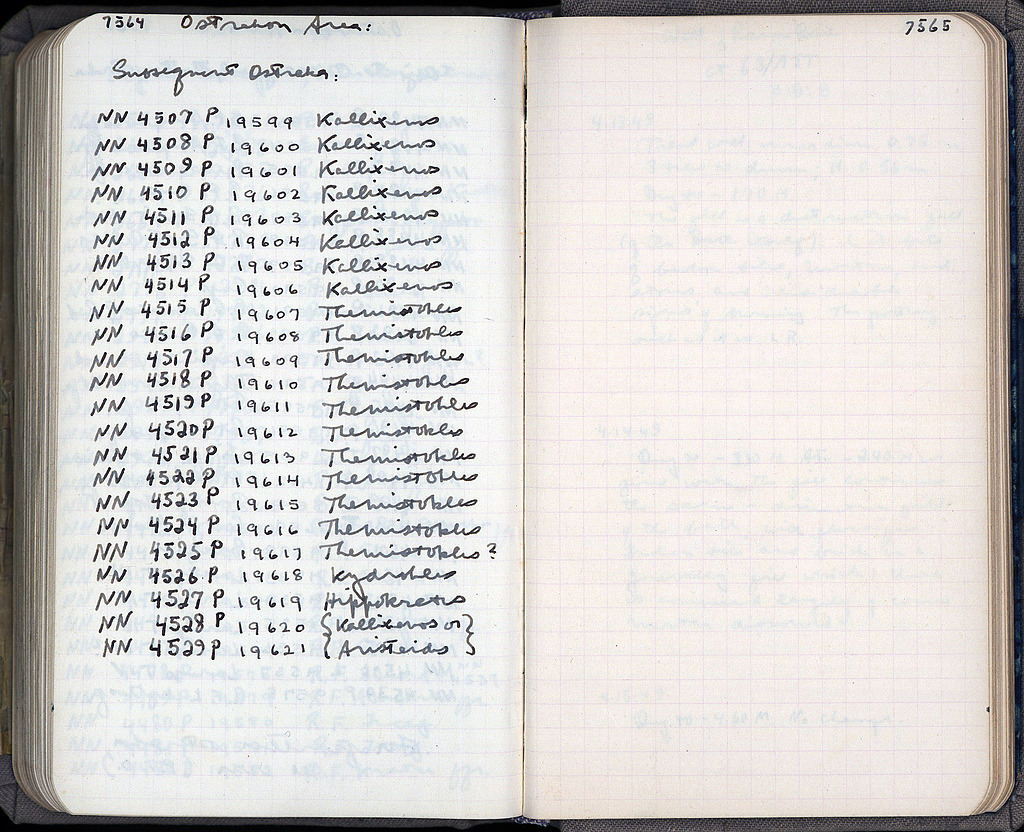 7564 Ostrakon Area:
Subsequent Ostraka:
NN 4507 P 19599 Kallixenos
NN 4508 P 19600 Kallixenos
NN 4509 P 19601 Kallixenos
NN 4510 P 19602 Kallixenos
NN 4511 P 19603 Kallixenos
NN 4512 P 19604 Kallixenos
NN 4513 P 19605 Kallixenos
NN 4514 P 19606 Kallixenos
NN 4515 P 19607 Themistokles
NN 4516 P 19608 Themistokles
NN 4517 P 19609 Themistokles
NN 4518 P 19610 Themistokles
NN 4519 P 19611 Themistokles
NN 4520 P 19612 Themistokles
NN 4521 P 19613 Themistokles
NN 4522 P 19614 Themistokles
NN 4523 P 19615 Themistokles
NN 4524 P 19616 Themistokles
NN 4525 P 19617 Themistokles?
NN 4526 P 19618 Kydrokles
NN 4527 P 19619 Hippokrates
NN 4528 P 19620 {Kallixenos or}
NN 4529 P 19621 {Aristeides}
7565